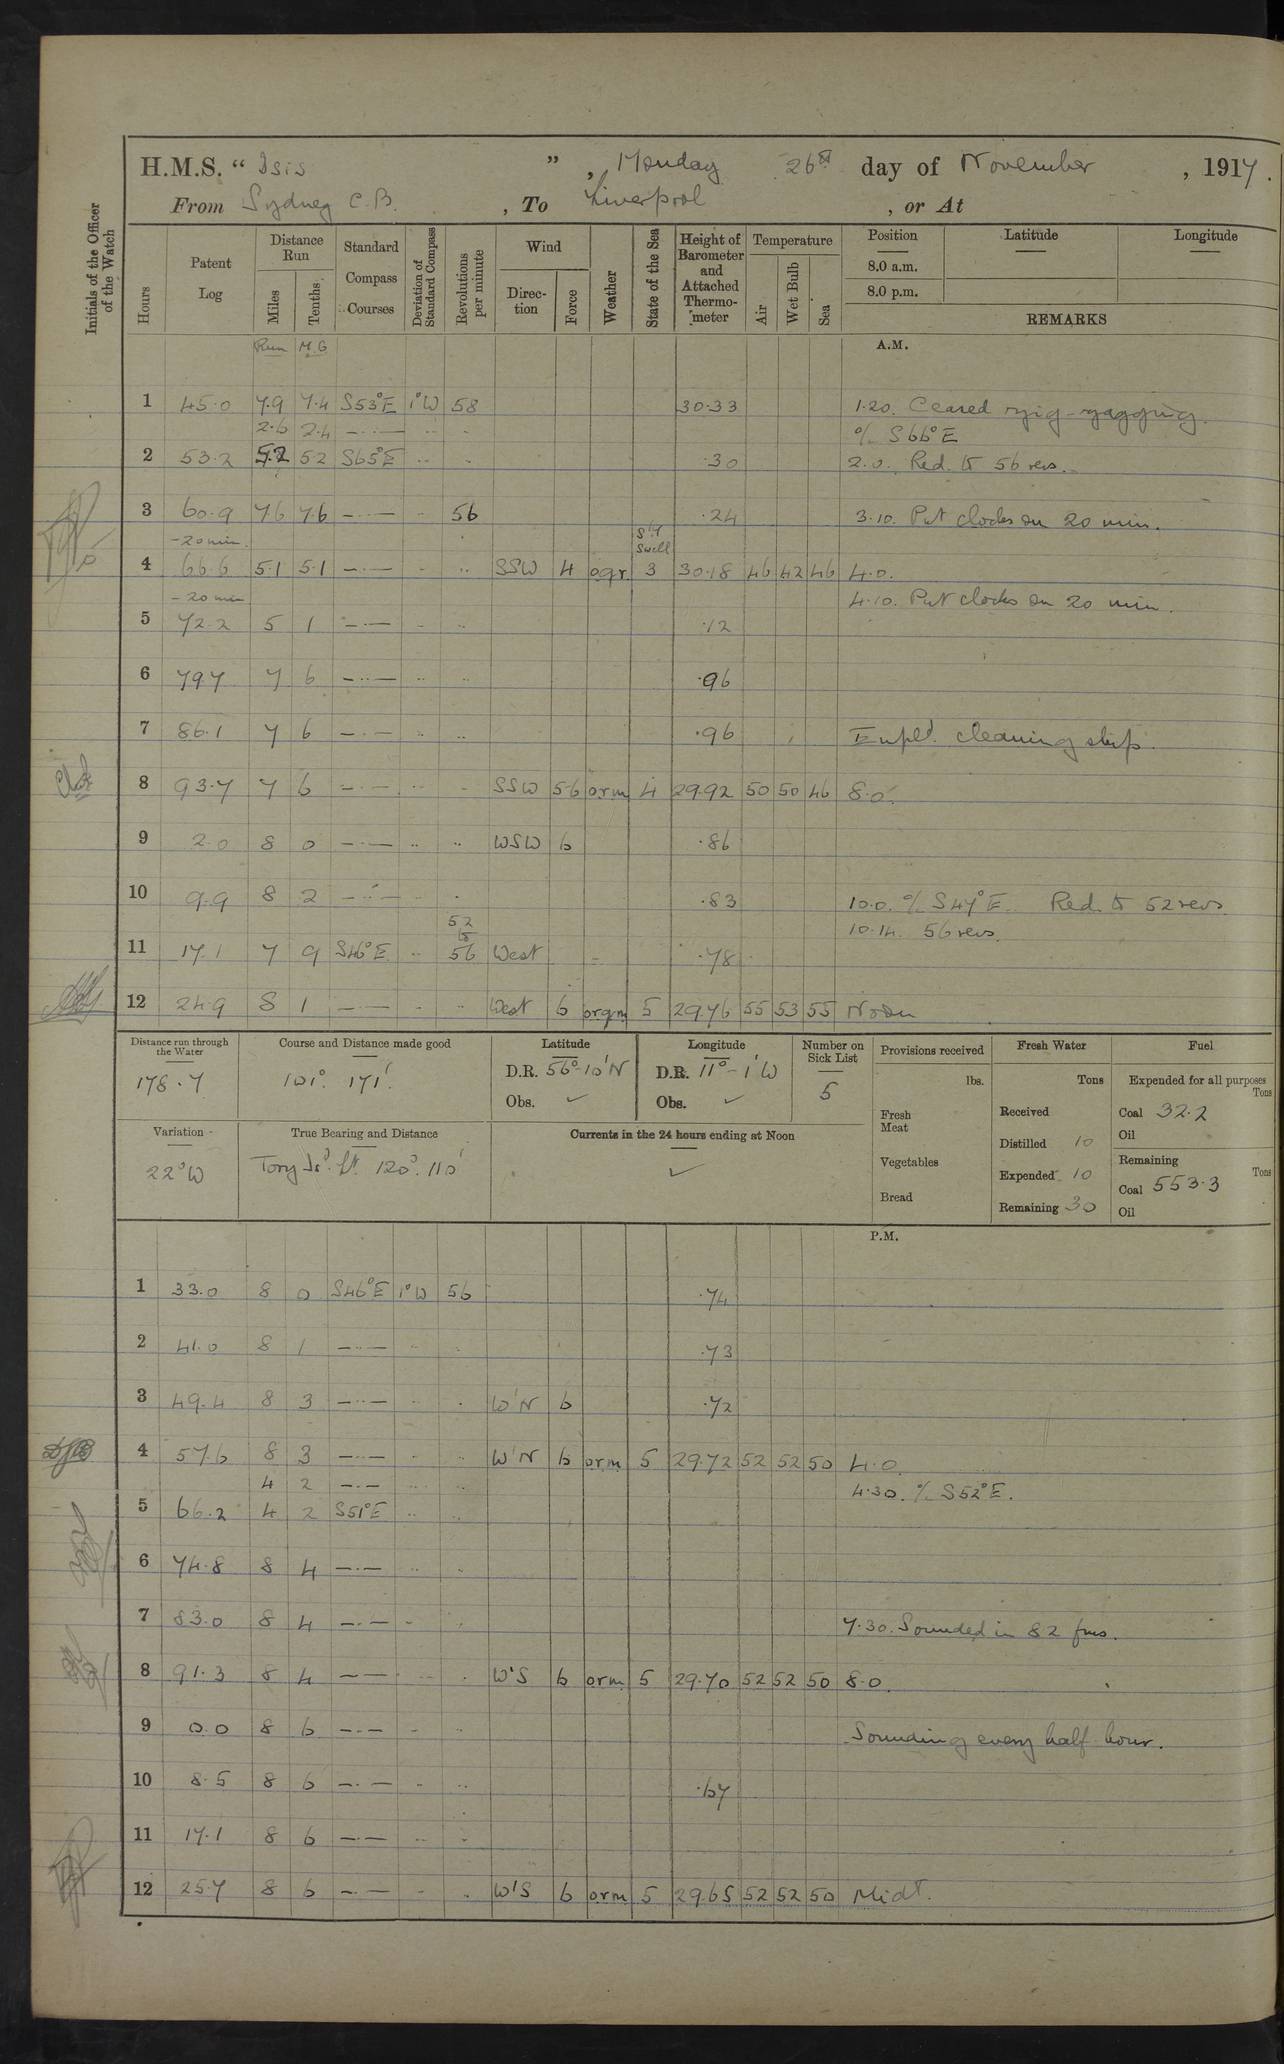 H.M.S. “ Isis ” , Monday 26th day of November , 1917 .
From Sydney C.B. , To Liverpool , or At
Initials of the Officer of the Watch
Hours Patent Log Distance Run Miles Tenths Standard Compass Courses Deviation of Standard Compass Revolutions per minute Wind Direction Force Weather State of the Sea Height of Barometer and Attached Thermometer Temperature Air Wet Bulb Sea Position 8.0 a.m. 8.0 p.m. Latitude Longitude
REMARKS
Run M.G A.M.
1 45.0 7.9 7.4 S53°E 1°W 58 30.33 1.20. Ceased zig-zagging.
2.6 2.4 —..— .. . % S66°E
2 53.2 5.2 52 S65°E .. . .30 2.0. Red. to 56 revs.
3 60.9 7.6 7.6 —.— .. 56 .24 3.10. Put clocks on 20 min.
-20 min. S'ly Swell
4 66.6 5.1 5.1 —.— . .. SSW 4 oqr. 3 30.18 46 42 46 4.0.
-20 min 4.10. Put clocks on 20 min.
5 72.2 5 1 —.— . .. .12
6 797 7 6 —..— .. .. .96
7 86.1 7 6 —.— .. .. .96 Empld. cleaning ship.
8 93.7 7 6 —.— .. . SSW 56 orm 4 29.92 50 50 46 8.0.
9 2.0 8 0 —.— .. .. WSW 6 .86
10 9.9 8 2 —..— .. . .83 10.0. % S47°E. Red. to 52 revs.
52 to 10.14. 56 revs.
11 17.1 7 9 S46°E .. 56 West .78
12 24.9 8 1 —.— . .. West 6 orqm 5 29.76 55 53 55 Noon
Distance run through the Water 178.7
Course and Distance made good 101°. 171'.
Latitude D.R. 56°-10'N Obs. ✓
Longitude D.R. 11°-1'W Obs. ✓
Number on Sick List 5
Provisions received lbs. Fresh Meat Vegetables Bread
Fresh Water Tons Received Distilled 10 Expended 10 Remaining 30
Fuel Expended for all purposes Tons Coal 32.2 Oil Remaining Tons Coal 553.3 Oil
Variation 22°W
True Bearing and Distance Tory Isd. Lt. 120°. 110'
Currents in the 24 hours ending at Noon ✓
P.M.
1 33.0 8 0 S46°E 1°W 56 .74
2 41.0 8 1 —..— .. . .73
3 49.4 8 3 —..— .. . W'N 6 .72
4 57.6 8 3 —..— . .. W'N 6 orm 5 29.72 52 52 50 4.0.
4 2 —.— .. .. 4.30. % S52°E.
5 66.2 4 2 S51°E .. ..
6 74.8 8 4 —.— .. .
7 83.0 8 4 —.— . . 7.30. Sounded in 82 fms.
8 91.3 8 4 —.— .. . W'S 6 orm 5 29.70 52 52 50 8.0.
9 0.0 8 6 —.— . .. Sounding every half hour.
10 8.5 8 6 —.— . .. .67
11 17.1 8 6 —.— .. .
12 25.7 8 6 —.— . . W'S 6 orm 5 29.65 52 52 50 Midt.